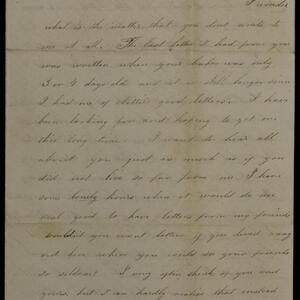 I wonder
what is the matter that you dont write to
me at all. The last letter I had from you
was written when your babe was only
3 or 4 days old and it is still longer since
I had one of good letters. I have
been looking for and hoping to get one
this long time. I want to hear all
about you just as much as if you
did not live so far from me. I have
some lonely hours when it would do me
real good to have letters from my friends
wouldn't you want letters if you lived away
out here where you could see your friends
so seldom? I very often think of you and
yours, but I can hardly realize that instead